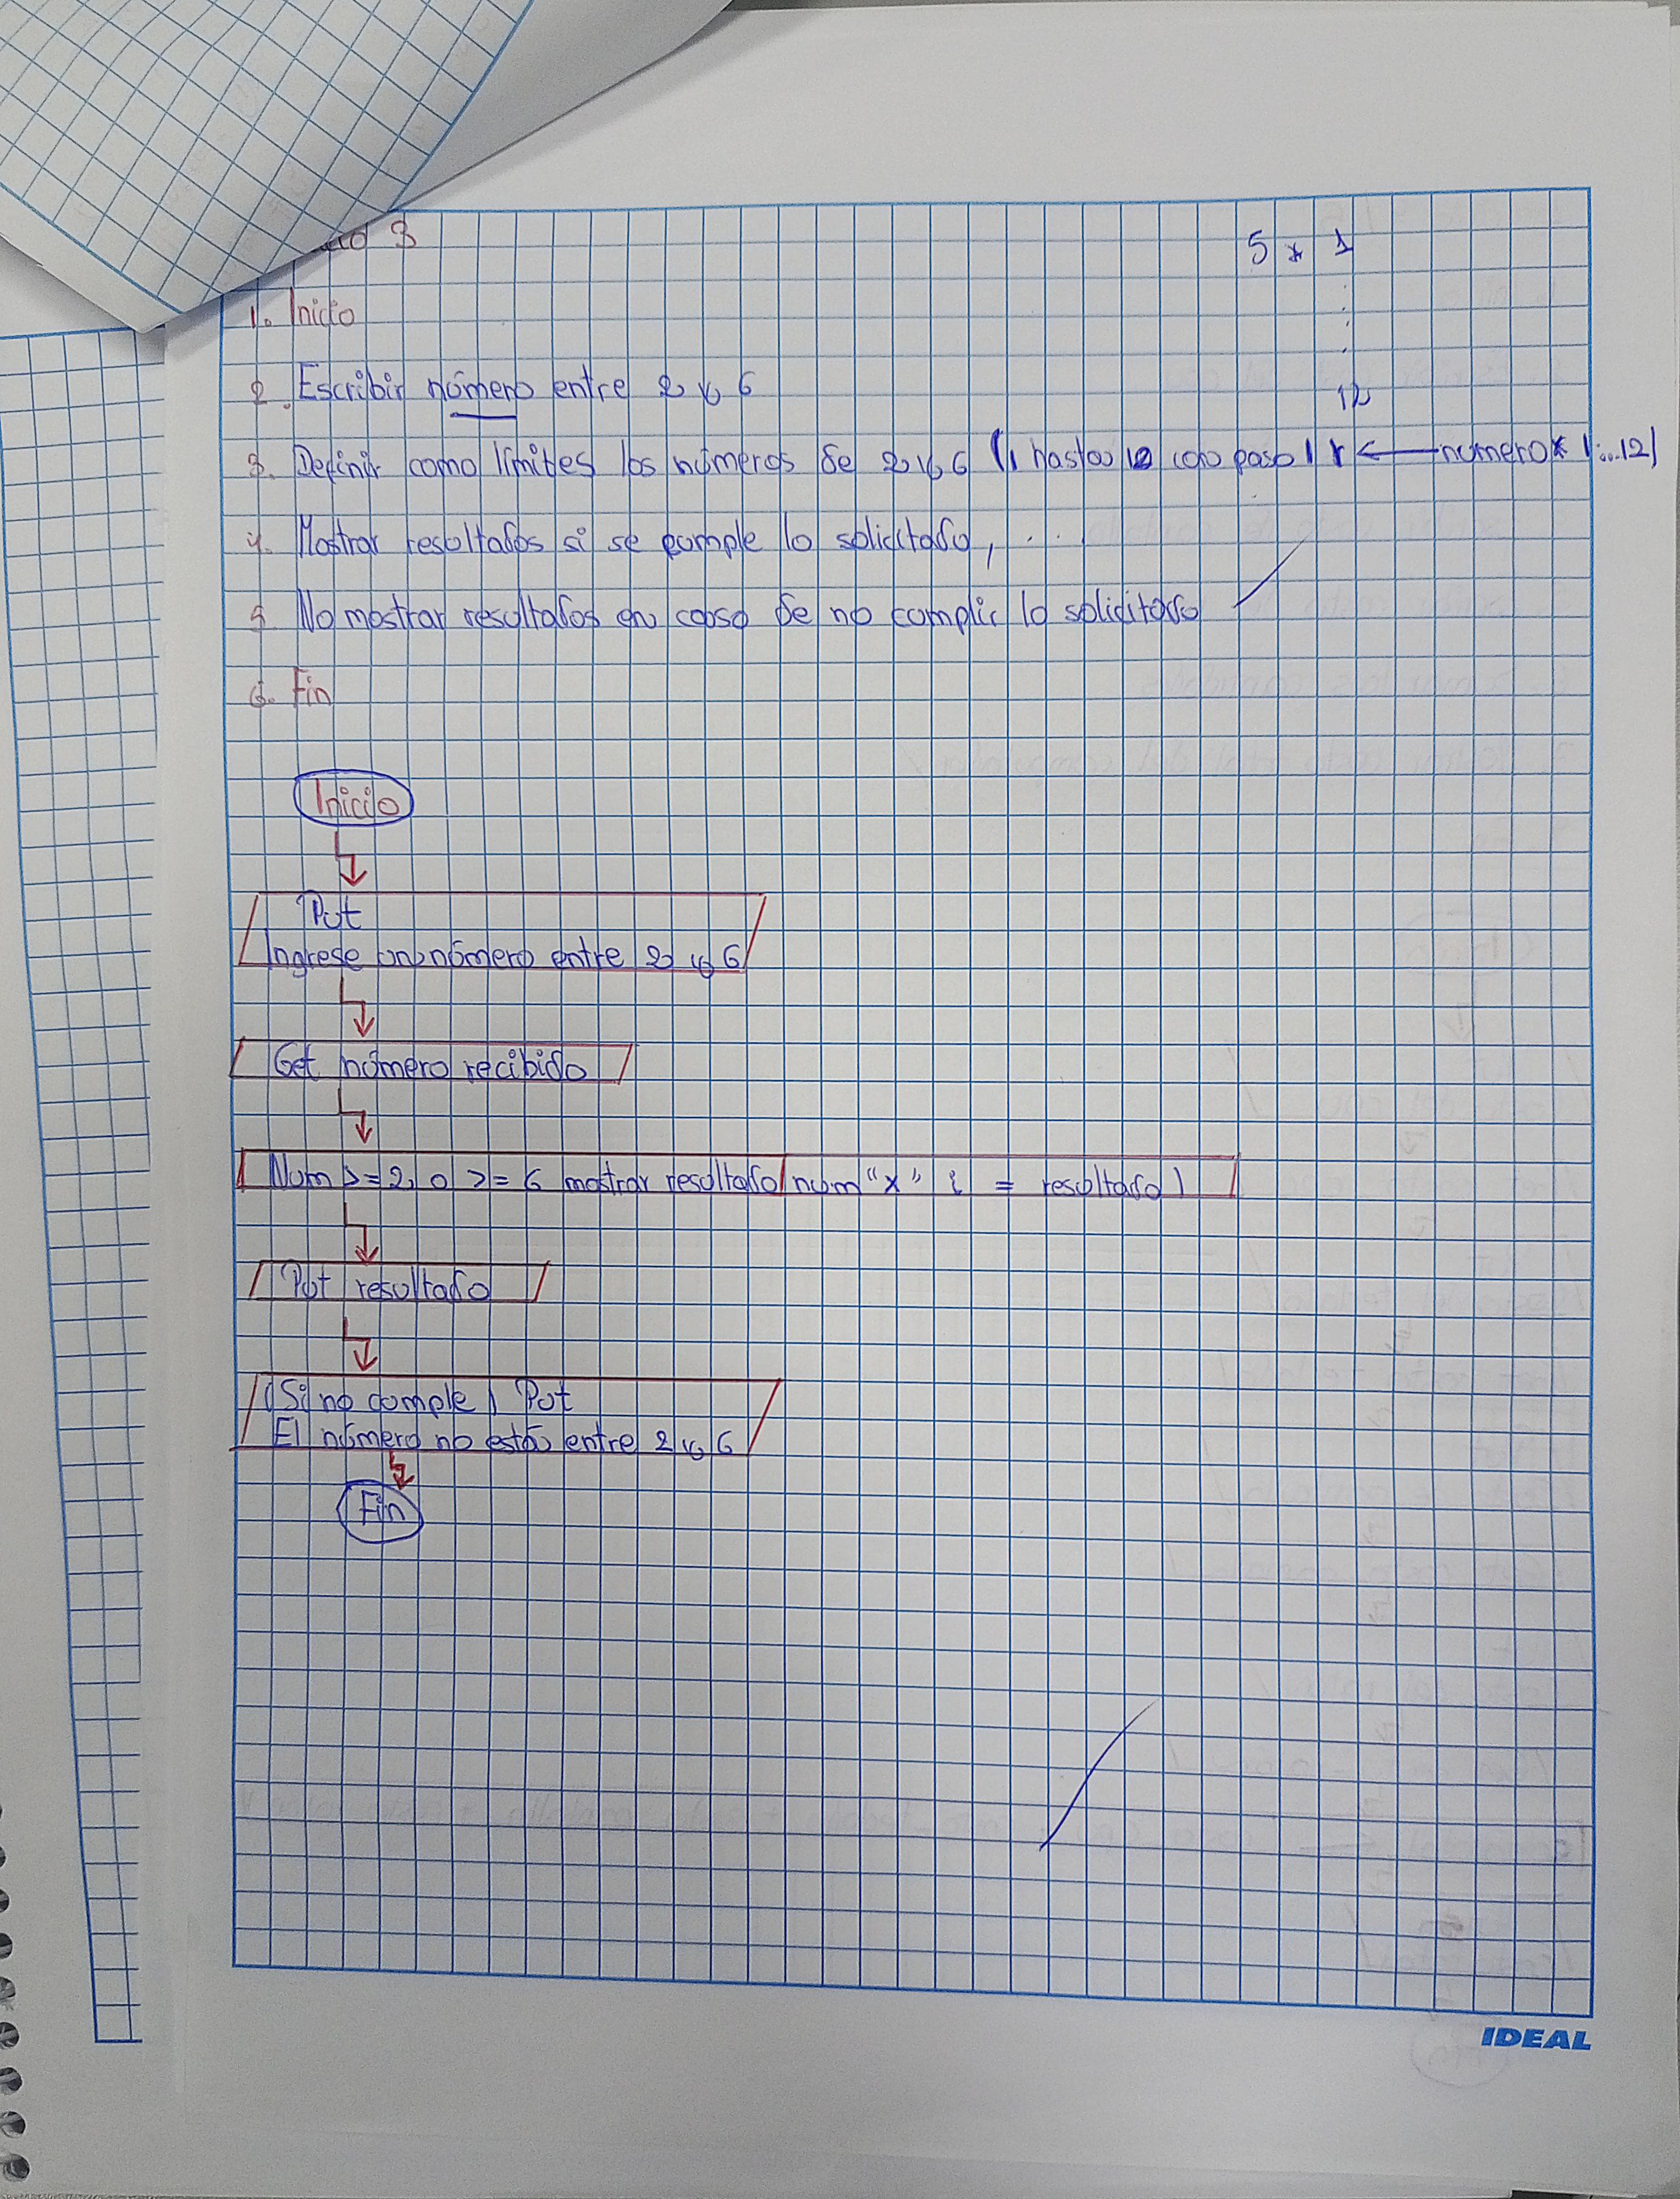 3
5 * 1
1. Inicio
2. Escribir número entre 2 y 6
12
3. Definir como límites los números de 2 y 6 (1 hasta 12 con paso 1 r ← número * 1...12)
4. Mostrar resultados si se cumple lo solicitado, ...
5. No mostrar resultados en caso de no cumplir lo solicitado
6. Fin
Inicio
Put
Ingrese un número entre 2 y 6
Get número recibido
Num >= 2, o >= 6 mostrar resultado (num "x" i = resultado)
Put resultado
(Si no cumple) Put
El número no está entre 2 y 6
Fin
IDEAL